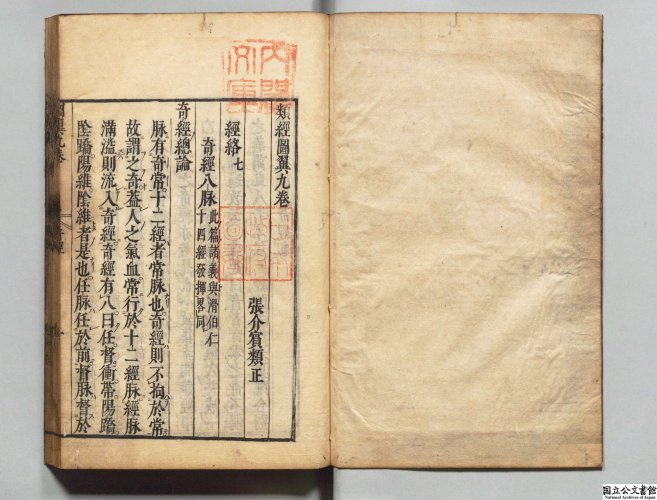 類經圖翼九卷
張介賓類正
經絡七
奇經八脉
此篇諸義與滑伯仁
十四經發揮畧同
奇經總論
脉有奇常十二經者常脉也奇經則不拘於常
故謂之奇蓋人之氣血常行於十二經脉經脉
滿溢則流入奇經奇經有八曰任督衝帶陽蹻
陰蹻陽維陰維者是也任脉任於前督脉督於
內閣
文庫
国立公文書館
National Archives of Japan